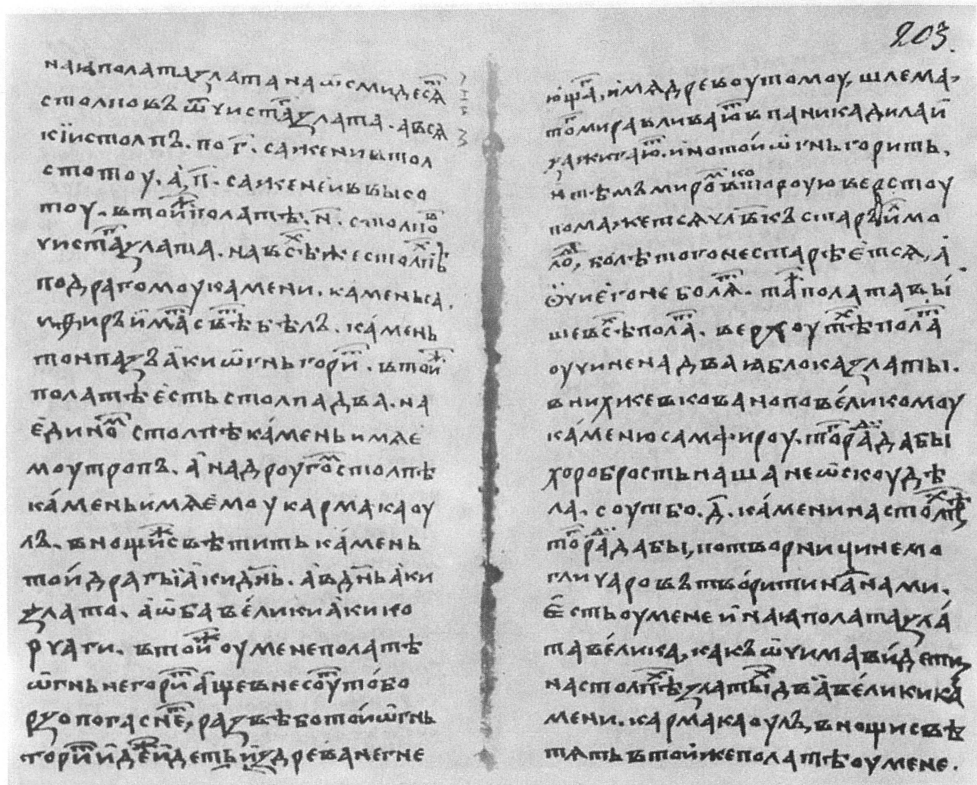 наꙗполатаꙁлатанаѿсмидесѧ
столповъѿчистаꙁлата. авсѧ
кїистолпъ. по г҃. саженивтол
стотоу. а, п҃. саженеиввысо
тоу. втоиполатѣ. н҃. столпо
чистаꙁлата. навсѣжестолпѣ
подрагомоукамени. каменьса
ѱѳиръимасвѣбѣлъ. камень
тонпаꙁъакиѿгньгори. втои
полатѣестьстолпадва. на
единостолпѣкаменьимѧе
моутропъ. анадроугостолпѣ
каменьимѧемоукармакаоу
лъ. внощисвѣтитькамень
тоидрагыїакидн҃ь. авдн҃ьаки
ꙁлато. аѿбавеликиакико
рчаги. втоиоуменеполатѣ
ѿгньнегориащевнесоутобо
рꙁопогасне, раꙁвѣботоиѿгнь
гориидеидетьиꙁдреванегне
203.
ющаимѧдревоутомоу, шлема,
томиравливаювпаникадилаи
ꙁажигаю. инотоиѿгньгорить.
итѣммировтороуюверстоу
ко
помажетсѧчл҃вкъстаръимо
ло, колѣтогонестарѣетсѧ, а
ѿчиегонеболѧ. таполатавы
шевсѣпола. верхоутѣпола
оучиненадваꙗблокаꙁлаты.
внихжевкованоповеликомоу
каменюсамфироу.торадабы
хоробростьнашанеѿскоудѣ
ла. соутбо. д҃. каменинастолпѣ
торадабы, потворничинемо
гличаровътворитинанами.
естьоуменеинаꙗполатаꙁла
тавелика, какъѿчимавидети
настолпѣꙁлатыдвавеликика
мени. кармакаоулъ, внощисвѣ
тѧтьвтоижеполатѣоумене.